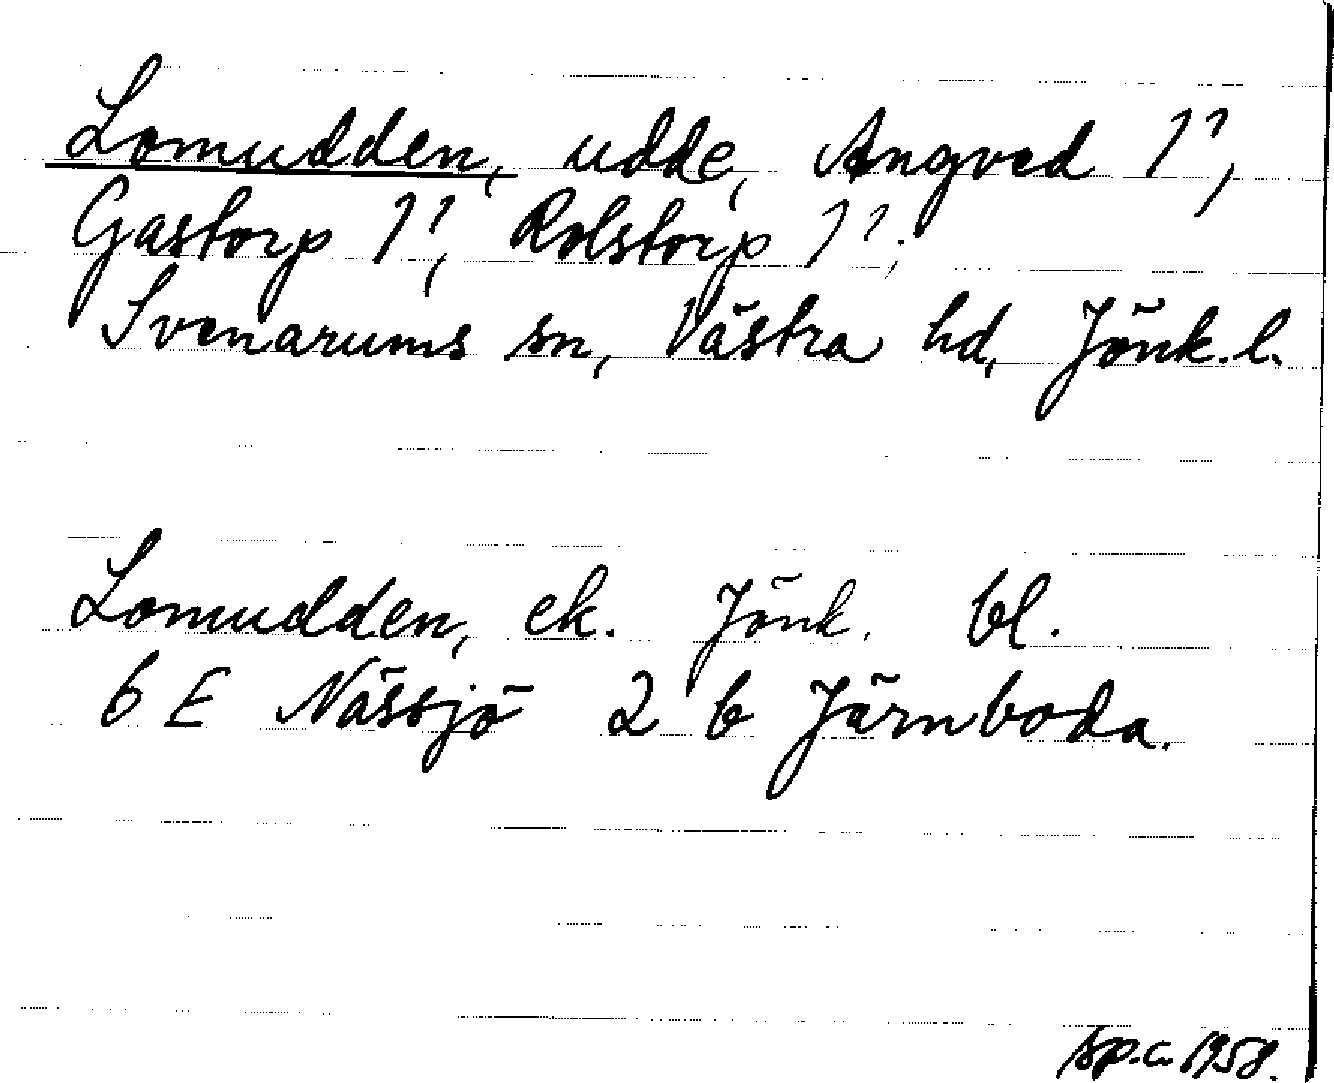 Lomudden, udde, Angved 1?,
Gastorp 1?, Rolstorp 1?;
Svenarums sn, Västra hd, Jönk. l.
Lomudden, ek. Jönk. bl.
6 E Nässjö 2 b Järnboda.
sp.c. 1958.